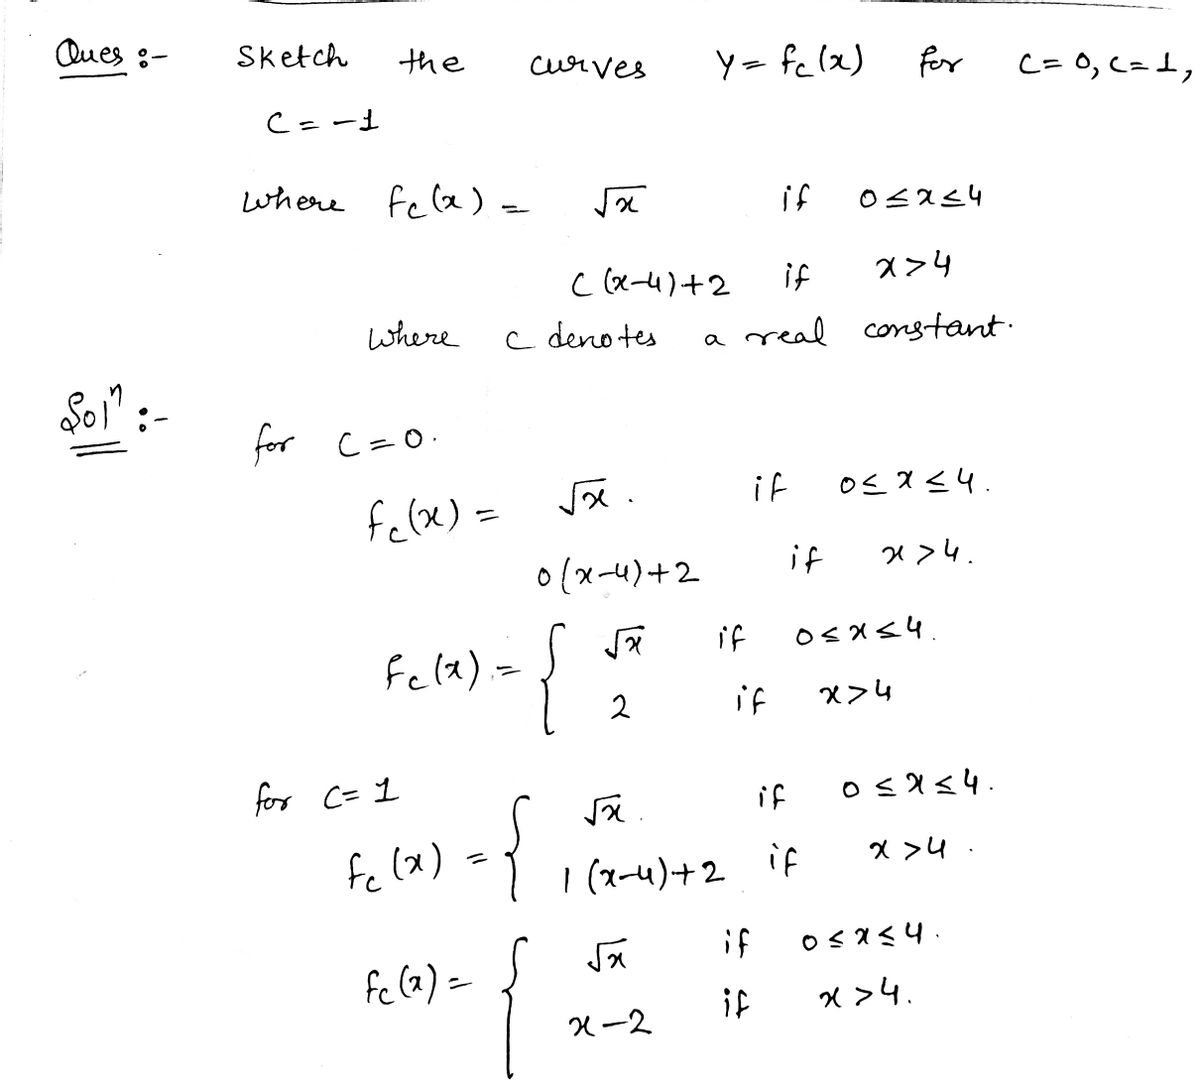 Ques :- Sketch the curves y = fc(x) for c = 0, c = 1,
c = -1
where fc(x) = √x if 0 ≤ x ≤ 4
c(x-4)+2 if x > 4
where c denotes a real constant.
Solⁿ :-
for c = 0.
fc(x) = √x . if 0 ≤ x ≤ 4.
0(x-4)+2 if x > 4.
fc(x) = { √x if 0 ≤ x ≤ 4.
2 if x > 4
for c = 1
fc(x) = { √x . if 0 ≤ x ≤ 4.
1(x-4)+2 if x > 4 .
fc(x) = { √x if 0 ≤ x ≤ 4.
x-2 if x > 4.